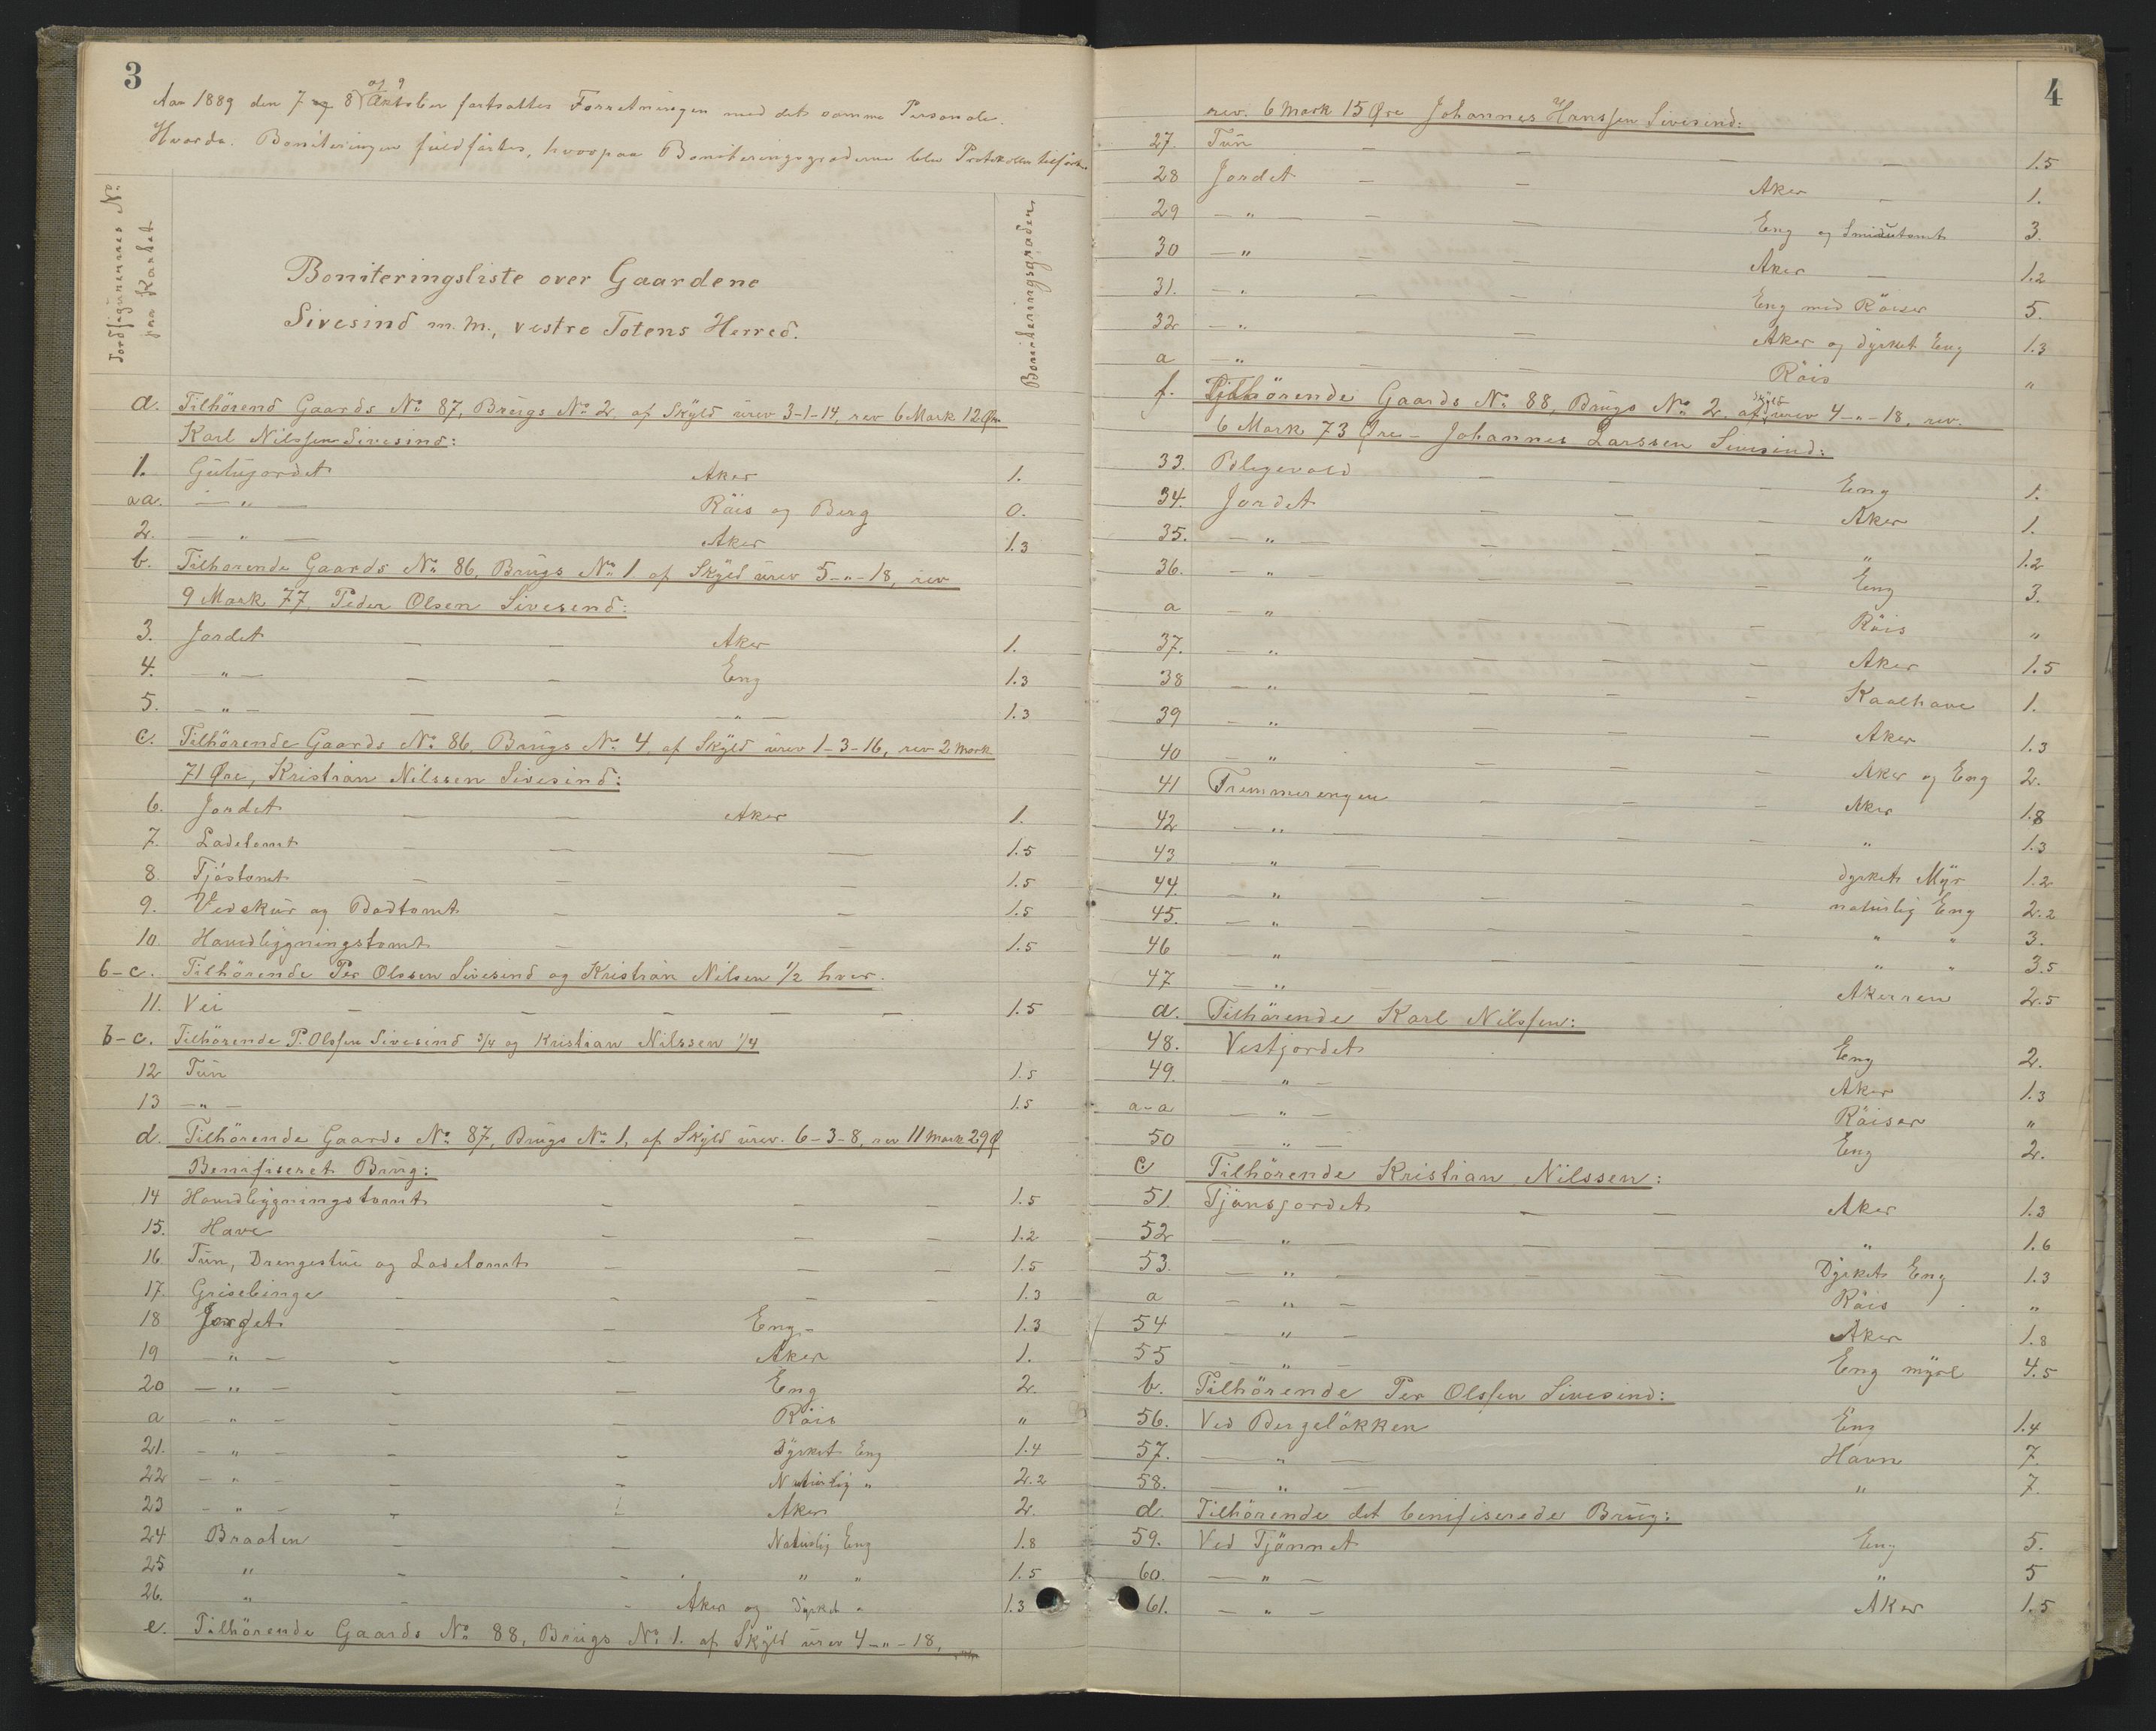 3
Aar 1889 den 7 og 8 og 9 Oktober fortsattes Forretningen med det samme Personale.
Hvorda. Boniteringen fuldførtes, hvorpaa Boniteringsgraderne blev Protokollen tilført.
Jordfigurernes No paa Kartet.
Boniteringsgrader.
Boniteringsliste over Gaardene
Sivesind m. m., vestre Totens Herred.
a. Tilhörend Gaards No 87, Brugs No 2, af Skyld urev 3-1-14, rev 6 Mark 12 Øre
Karl Nilssen Sivesind:
1. Gutujordet Aker 1.
aa. — " — Röis og Berg 0.
2. — " — Aker 1.3
b. Tilhörende Gaards No 86, Brugs No 1. af Skyld urev 5-"-18, rev
9 Mark 77, Peder Olsen Sivesind:
3. Jordet — — Aker 1.
4. — " — — — Eng 1.3
5. — " — — — — " — 1.3
c. Tilhörende Gaards No 86, Brugs No 4, af Skyld urev 1-3-16, rev 2 Mark
71 Øre, Kristian Nilssen Sivesind:
6. Jordet — — Aker 1.
7. Ladetomt — — — 1.5
8. Fjöstomt — — — 1.5
9. Vedskur og Bodtomt — — 1.5
10. Hovedbygningstomt — — 1.5
b-c. Tilhörende Per Olssen Sivesind og Kristian Nilsen 1/2 hver.
11. Vei — — — — — 1.5
b-c. Tilhörende P. Olssen Sivesind 3/4 og Kristian Nilssen 1/4
12 Tun 1.5
13 — " — 1.5
d. Tilhörende Gaards No 87, Brugs No 1, af Skyld urev. 6-3-8, rev 11 Mark 29 Ø
Benifiseret Brug:
14 Hovedbygningstomt — — — 1.5
15. Have — — — 1.2
16 Tun, Drengestue og Ladetomt — — — 1.5
17. Grisebinge — — — — 1.3
18 Jordet — — Eng — 1.3
19 — " — — — Aker 1.
20 — " — — — Eng 2.
a — " — — — Röis "
21. — " — — — Dyrket Eng 1.4
22 — " — — — Naturlig " 2.2
23 — " — — Aker 2.
24 Braaten — — Naturlig Eng 1.8
25 " — — " " 1.5
26. " — — Aker og Dyrket " 1.3
e. Tilhörende Gaards No 88, Brugs No 1. af Skyld urev 4-"-18,
4
rev. 6 Mark 15 Øre Johannes Hanssen Sivesind:
27. Tun — — — — 1.5
28 Jordet — — Aker — 1.
29 — " — — — Eng og Smiutomt 3.
30 — " — — Aker — 1.2
31. — " — — Eng med Röiser 5.
32 — " — — Aker og dyrket Eng 1.3
a — " — — Röis "
f. Tilhörende Gaards No 88, Brugs No 2. af Skyld urev 4-"-18, rev.
6 Mark 73 Øre — Johannes Larssen Sivesind:
33. Blegevold — — — Eng 1.
34. Jordet — — — Aker 1.
35. — " — — — — " 1.2
36. — " — — — — Eng 3.
a — " — — — Röis "
37. — " — — — Aker 1.5
38 — " — — — Kaalhave 1.
39 — " — — — Aker 1.3
40 — " — — — Aker og Eng 2.
41 Fremmerengen — — — Aker 1.8
42 — " — — — — " 1.3
43 — " — — — — dyrket Myr 1.2
44. — " — — — — naturlig Eng 2.2
45. — " — — — — " " 3.
46 — " — — — " " 3.5
47 — " — Akerren 2.5
a. Tilhörende Karl Nilssen:
48. Vestjordet Eng 2.
49. — " — Aker 1.3
a-a — " — Röiser "
50 — " — Eng 2.
c. Tilhörende Kristian Nilssen:
51. Tjönsjordet — — Aker 1.3
52 — " — — — " 1.6
53. — " — — — Dyrket Eng 1.3
a — " — Röis "
54 — " — Aker 1.8
55 — " — Eng 4.5
b. Tilhörende Per Olssen Sivesind:
56. Ved Bergelökken Eng 1.4
57. — " — Havn 7.
58. — " — " 7.
d. Tilhörende det benifiserede Brug:
59. Ved Tjönnet Eng 5.
60. — " — " 5
61. — " — Aker 1.5